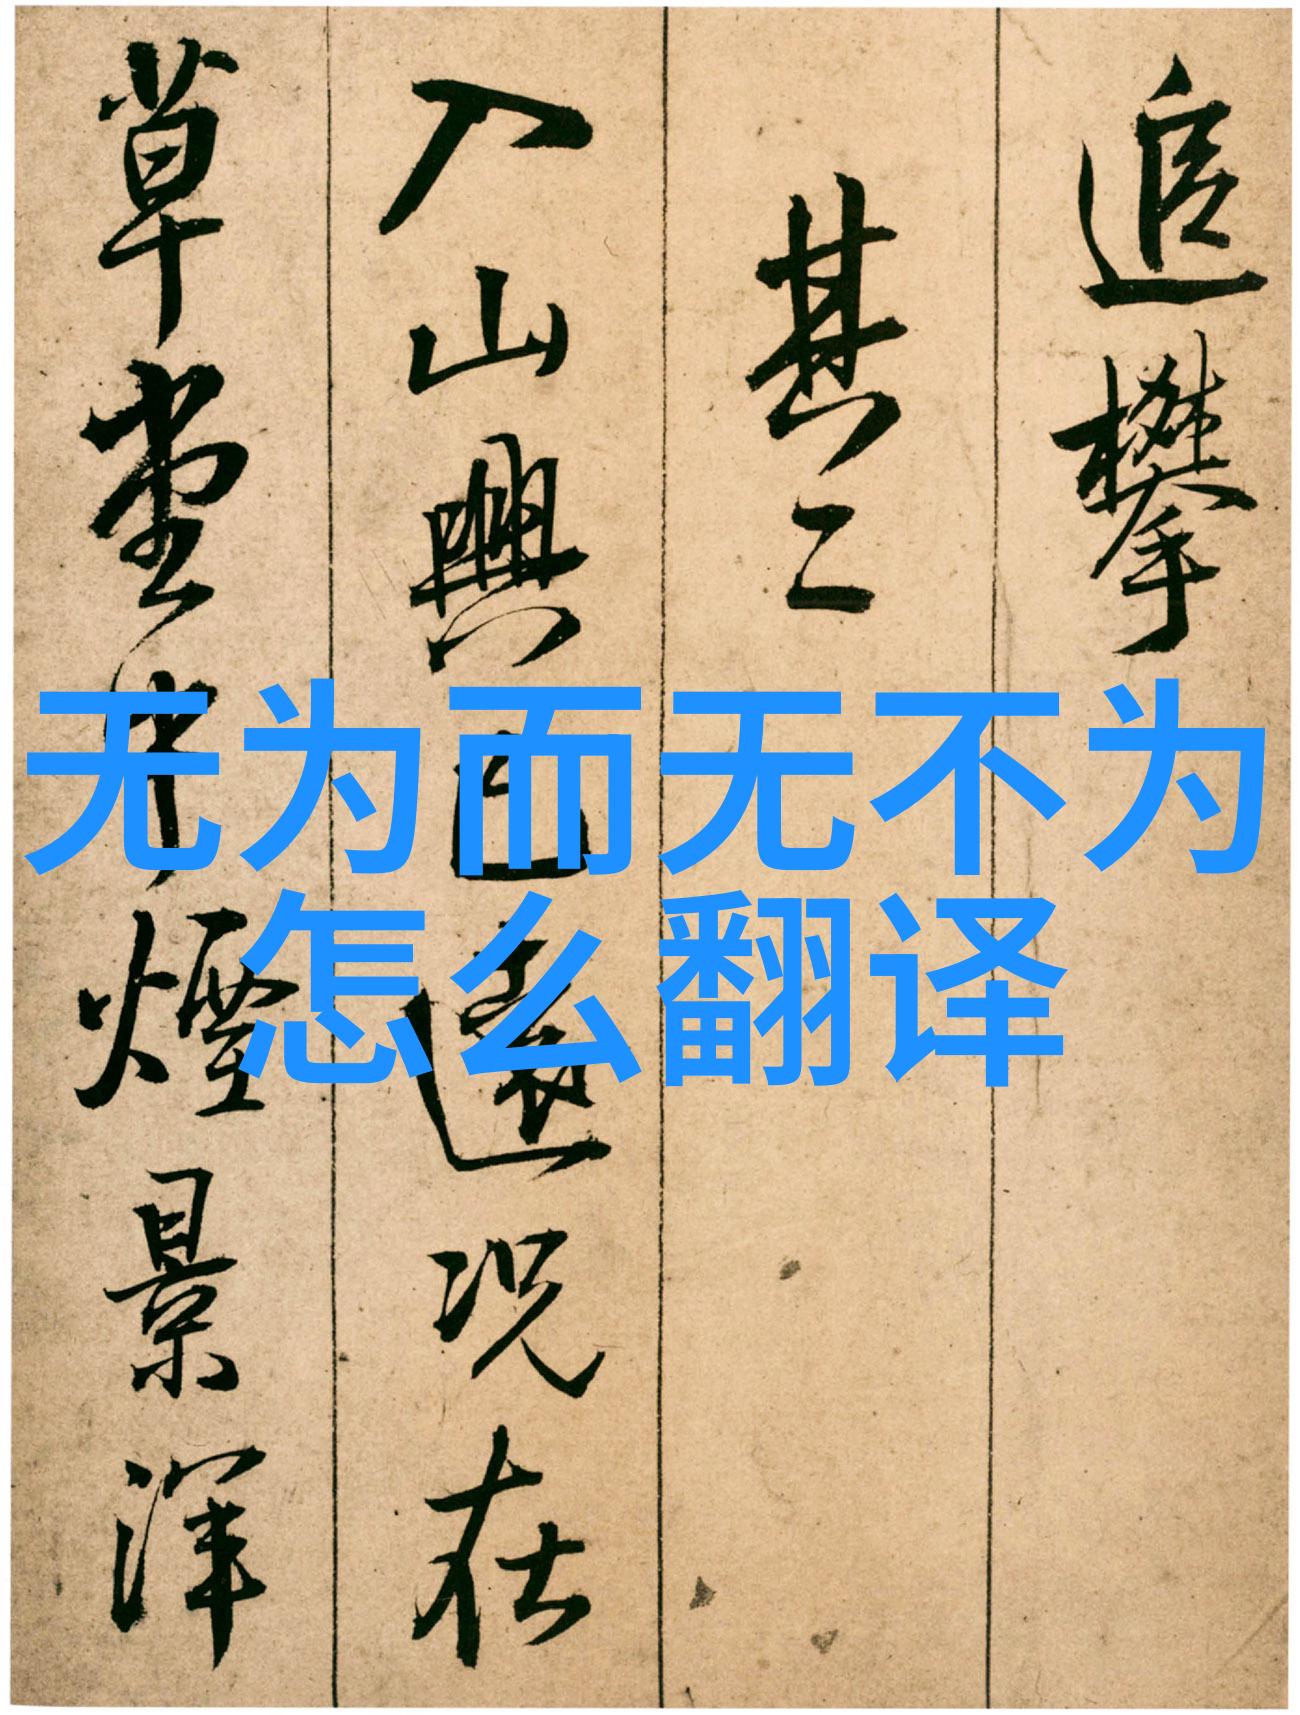 追攀
其二
入山興已遠况在
草堂中煙景渾
无为而无不为
怎么翻译